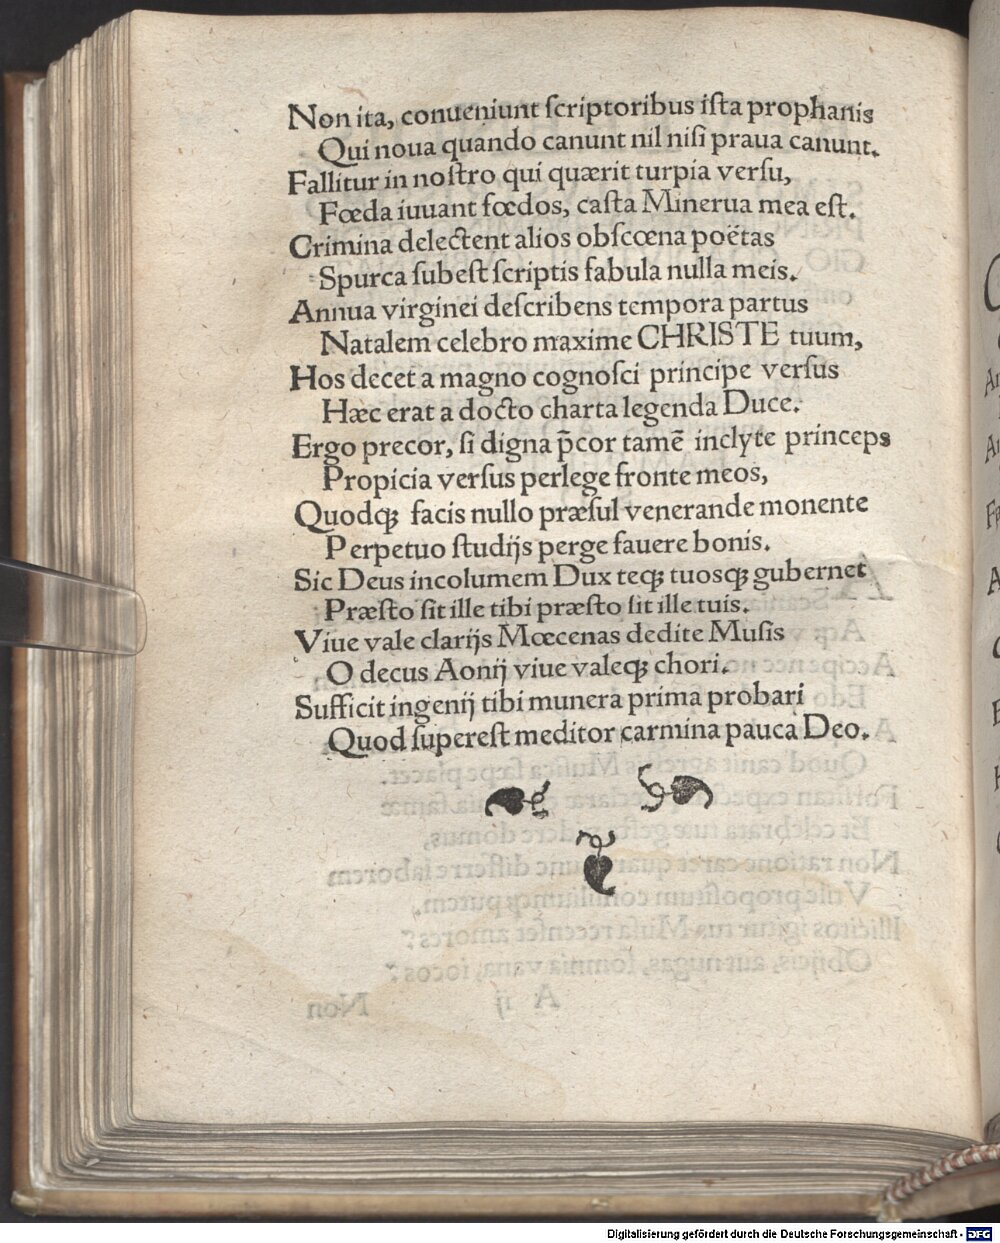 Non ita, conueniunt ſcriptoribus iſta prophanis
Qui noua quando canunt nil niſi praua canunt.
Fallitur in noſtro qui quærit turpia verſu,
Fœda iuuant fœdos, caſta Minerua mea eſt.
Crimina delectent alios obſcœna poëtas
Spurca ſubeſt ſcriptis fabula nulla meis.
Annua virginei deſcribens tempora partus
Natalem celebro maxime CHRISTE tuum,
Hos decet a magno cognoſci principe verſus
Hæc erat a docto charta legenda Duce.
Ergo precor, ſi digna p̄cor tamē inclyte princeps
Propicia verſus perlege fronte meos,
Quodꝗ facis nullo præſul venerande monente
Perpetuo ſtudijs perge fauere bonis.
Sic Deus incolumem Dux teꝗ tuosꝗ gubernet
Præſto ſit ille tibi præſto ſit ille tuis.
Viue vale clarijs Mœcenas dedite Muſis
O decus Aonij viue valeꝗ chori.
Sufficit ingenij tibi munera prima probari
Quod ſupereſt meditor carmina pauca Deo.
Digitalisierung gefördert durch die Deutsche Forschungsgemeinschaft - DFG